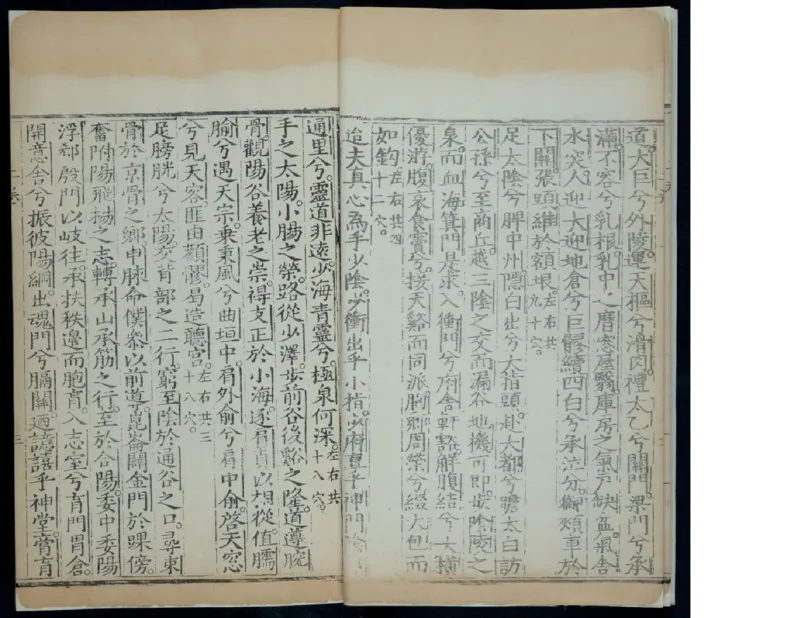 道。大巨兮外陵。運天樞兮滑肉。禮太乙兮關門。梁門兮承
滿。不容兮乳根。乳中。膺窻屋翳。庫房之氣戶。缺盆。氣舍
水突。人迎大迎地倉兮。巨髎續四白兮。承泣分。御頰車於
下關。張頭維於額垠。左右共九十穴。
足太陰兮脾中州。隱白出兮大指頭。赴大都兮瞻太白。訪
公孫兮至商丘。越三陰之交而漏谷地機可即。步陰陵之
泉。而血海箕門是求。入衝門兮府舍軒豁。解腹結兮大橫
優游。腹哀食竇兮。接天谿而同派。胸鄉周榮兮。綴大包而
如鉤。左右共四十二穴。
迨夫真心為手少陰。少衝出乎小指。少府直乎神門。陰
通里兮。靈道非遠。少海青靈兮。極泉何深。左右共十八穴。
手之太陽。小腸之榮。路從少澤。步前谷後谿之隆。道遵腕
骨。觀陽谷養老之崇。得支正於小海。逐肩貞以相從。值臑
腧兮遇天宗。乘秉風兮曲垣中。肩外俞兮肩中俞。啓天窓
兮見天容。匪由顴髎。曷造聽宮。左右共三十八穴。
足膀胱兮太陽。交背部之二行。窮至陰於通谷之口。尋束
骨於京骨之鄉。申脉命僕參以前導。崑崙闢金門於踝傍。
奮附陽飛揚之志。轉承山承筋之行。至於合陽。委中委陽
浮郄殷門以岐往。承扶秩邊而胞肓。入志室兮肓門胃倉。
開意舍兮振彼陽綱。出魂門兮膈關。迺譩譆乎神堂。膏肓